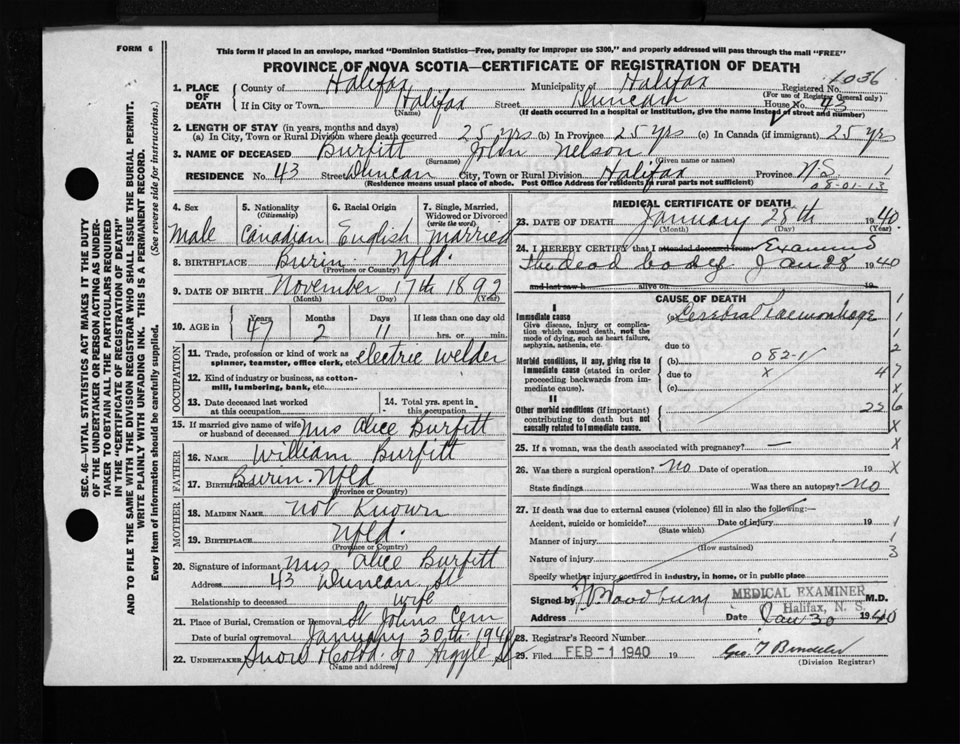 FORM 6
This form if placed in an envelope, marked "Dominion Statistics—Free, penalty for improper use $300," and properly addressed will pass through the mail "FREE"
PROVINCE OF NOVA SCOTIA—CERTIFICATE OF REGISTRATION OF DEATH
SEC. 46—VITAL STATISTICS ACT MAKES IT THE DUTY
OF THE UNDERTAKER OR PERSON ACTING AS UNDER-
TAKER TO OBTAIN ALL THE PARTICULARS REQUIRED
IN THE "CERTIFICATE OF REGISTRATION OF DEATH"
AND TO FILE THE SAME WITH THE DIVISION REGISTRAR WHO SHALL ISSUE THE BURIAL PERMIT.
WRITE PLAINLY WITH UNFADING INK. THIS IS A PERMANENT RECORD.
Every item of information should be carefully supplied. (See reverse side for instructions.)
1. PLACE OF DEATH County of Halifax Municipality of Halifax Registered No. 1036
(For use of Registrar General only)
If in City or Town Halifax Street Duncan House No. 43
(Name) (If death occurred in a hospital or institution, give the name instead of street and number)
2. LENGTH OF STAY (in years, months and days)
(a) In City, Town or Rural Division where death occurred 25 yrs (b) In Province 25 yrs (c) In Canada (if immigrant) 25 yrs
3. NAME OF DECEASED Burfitt John Nelson
(Surname) (Given name or names)
RESIDENCE No. 43 Street Duncan City, Town or Rural Division Halifax Province N.S. 1
(Residence means usual place of abode. Post Office Address for residents in rural parts not sufficient) 08-01-13
4. Sex 5. Nationality (Citizenship) 6. Racial Origin 7. Single, Married, Widowed or Divorced (write the word)
Male Canadian English Married
8. BIRTHPLACE Burin Nfld.
(Province or Country)
9. DATE OF BIRTH November 17th 1892
(Month) (Day) (Year)
10. AGE in Years Months Days If less than one day old
47 2 11 hrs. or min.
OCCUPATION
11. Trade, profession or kind of work as spinner, teamster, office clerk, etc. electric welder
12. Kind of industry or business, as cotton-mill, lumbering, bank, etc.
13. Date deceased last worked at this occupation 14. Total yrs. spent in this occupation
15. If married give name of wife or husband of deceased Mrs Alice Burfitt
FATHER
16. NAME William Burfitt
17. BIRTHPLACE Burin. Nfld
(Province or Country)
MOTHER
18. MAIDEN NAME Not Known
19. BIRTHPLACE Nfld.
(Province or Country)
20. Signature of informant Mrs Alice Burfitt
Address 43 Duncan St
Relationship to deceased Wife
21. Place of Burial, Cremation or Removal St Johns Cem
Date of burial or removal January 30th 1940
22. UNDERTAKER Snow & Co Ltd. 90 Argyle St
(Name and address)
MEDICAL CERTIFICATE OF DEATH
23. DATE OF DEATH January 28th 1940
(Month) (Day) (Year)
24. I HEREBY CERTIFY that I attended deceased from Examined
the dead body Jan 28 1940
and last saw h alive on 19
CAUSE OF DEATH
I
Immediate cause (a) Cerebral Haemorrhage
Give disease, injury or complication which caused death, not the mode of dying, such as heart failure, asphyxia, asthenia, etc.
due to
Morbid conditions, if any, giving rise to immediate cause (stated in order proceeding backwards from immediate cause).
(b) 082-1
due to x
(c)
II
Other morbid conditions (if important) contributing to death but not causally related to immediate cause.
1
1
2
47
X
256
X
X
25. If a woman, was the death associated with pregnancy? —
26. Was there a surgical operation? No Date of operation 19 X
State findings Was there an autopsy? No
27. If death was due to external causes (violence) fill in also the following:—
Accident, suicide or homicide? Date of injury 19 1
(State which)
Manner of injury 1
(How sustained)
Nature of injury 3
Specify whether injury occurred in industry, in home, or in public place
Signed by Woodbury M.D.
MEDICAL EXAMINER
Halifax, N. S.
Address Date Jan 30 1940
28. Registrar's Record Number
29. Filed FEB -1 1940 19
(Division Registrar)